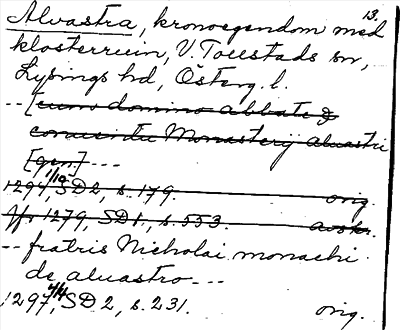 13.
Alvastra, kronoegendom med
klosterruin, V. Tollstads sn,
Lysings hd, Österg. l.
-- [cum domino abbate &
conuentu Monasterij aluastri
[gen.] ---
1294 1/10, SD 2, s. 179. orig.
1279, SD 1, s. 553. avskr.
-- fratris Nicholai monachi
de aluastro ---
1297 4/4, SD 2, s. 231. orig.